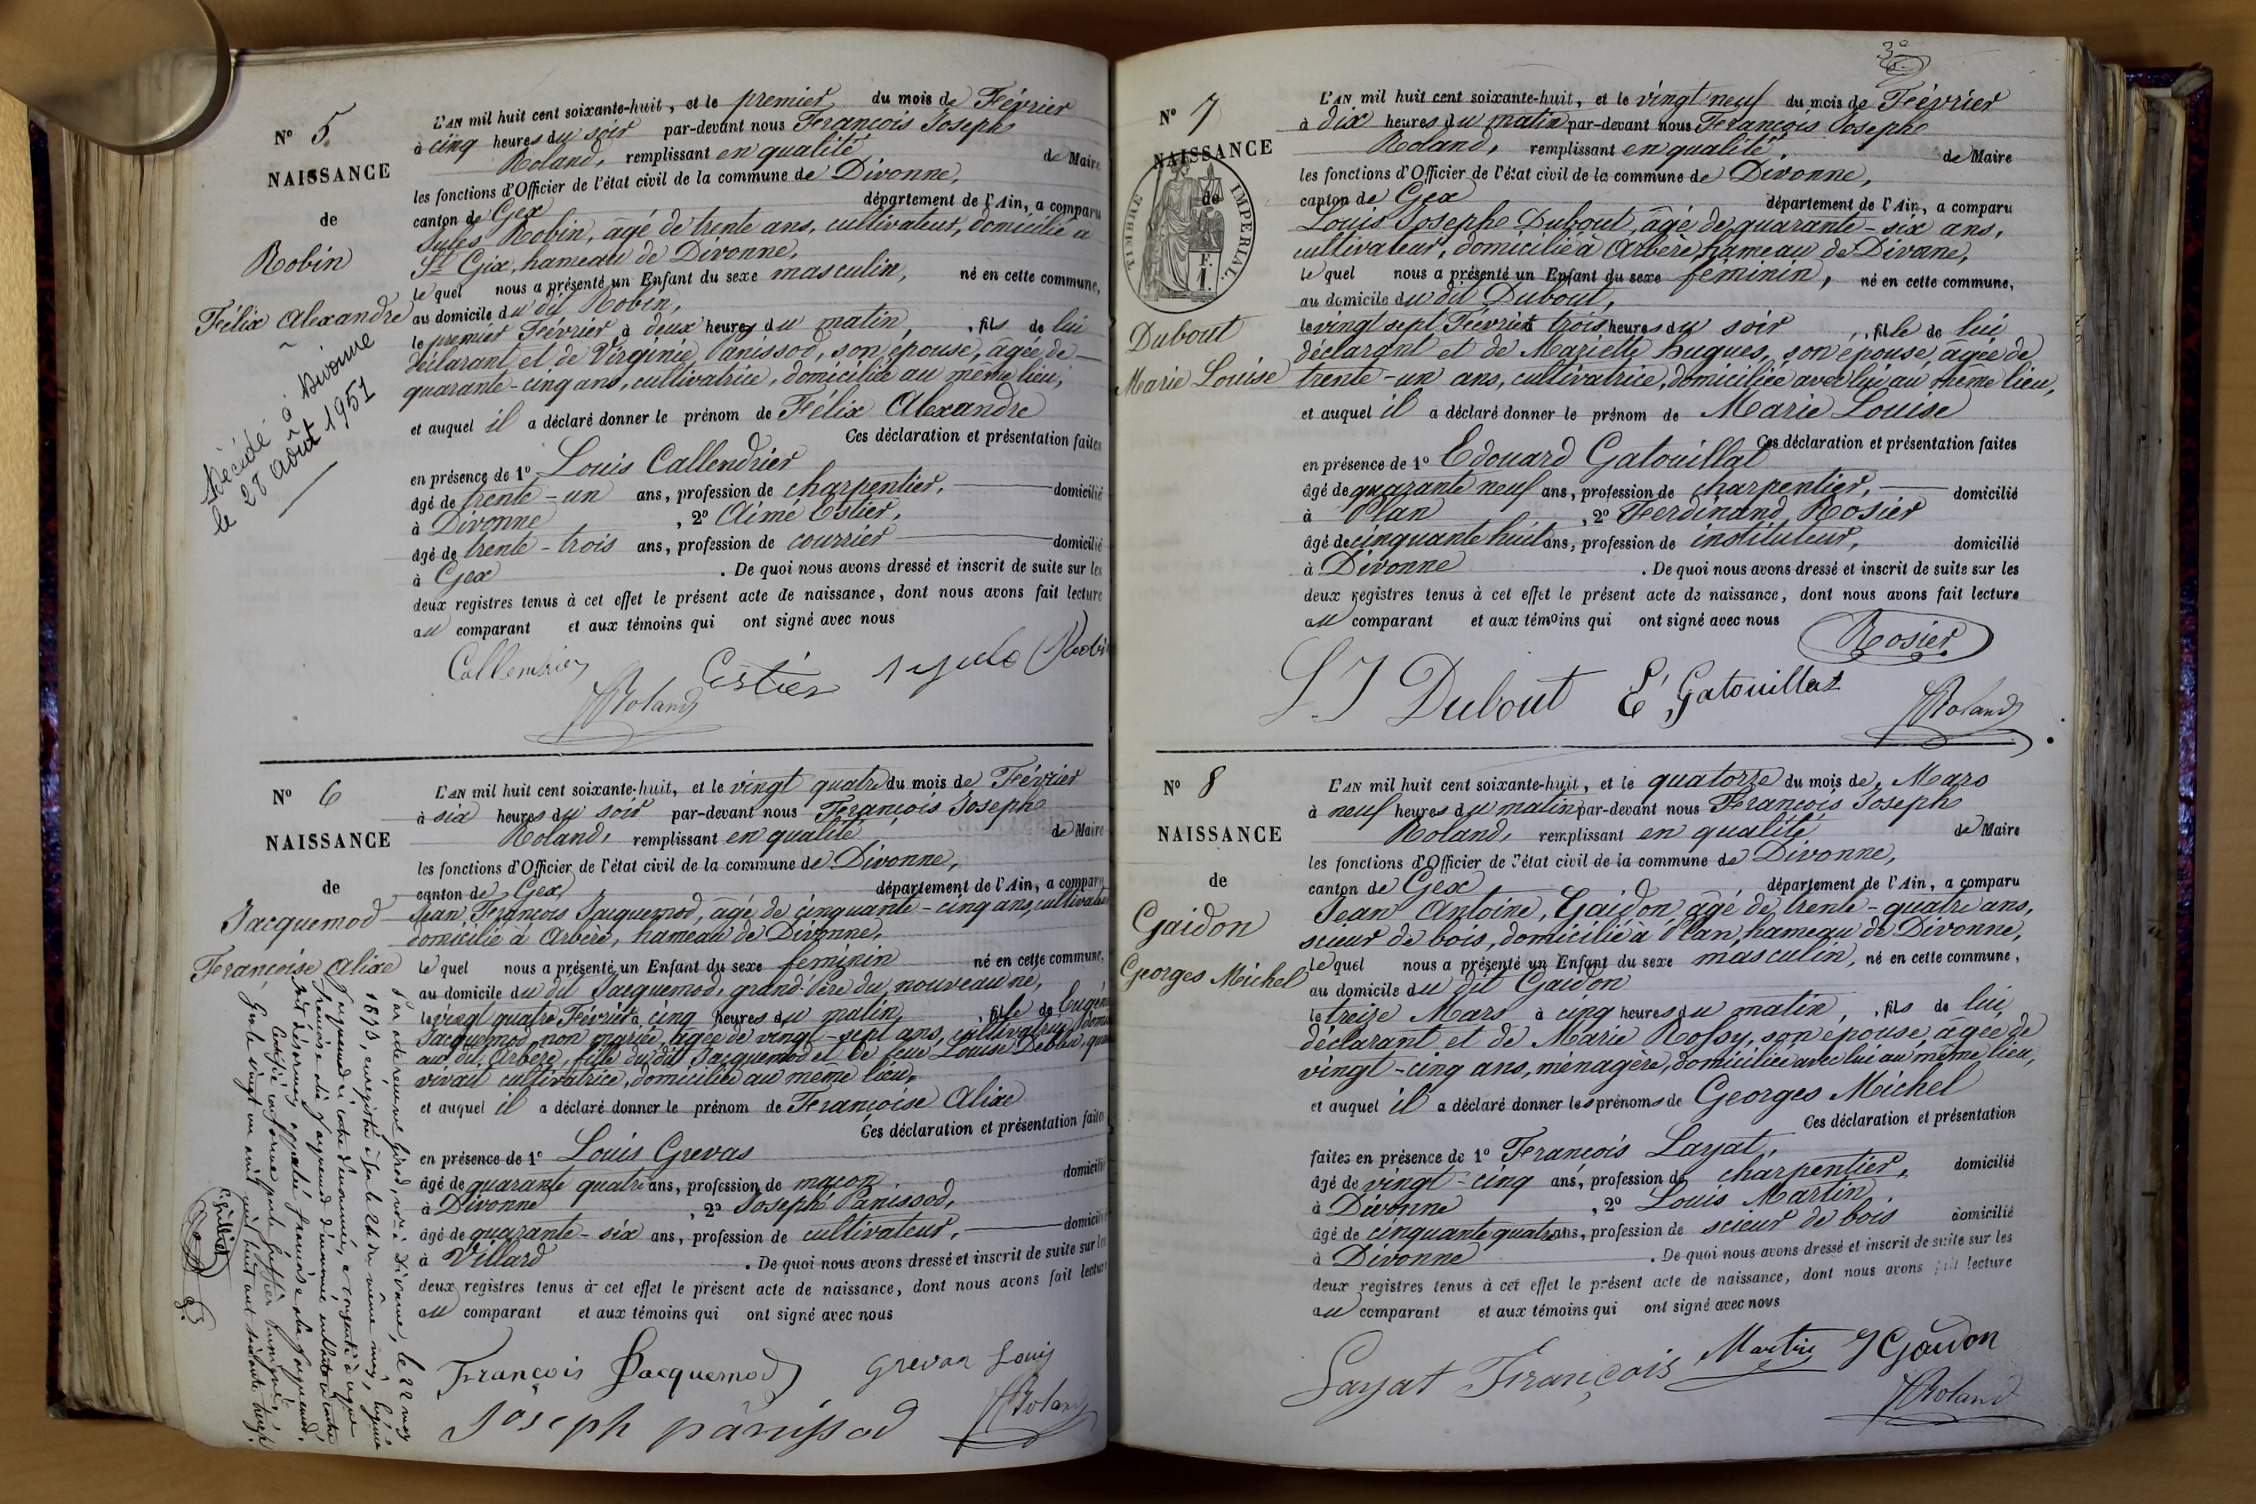 Nº 5.
NAISSANCE
de
Robin
Félix Alexandre
Décédé à Divonne
le 28 Août 1951
L'AN mil huit cent soixante-huit, et le premier du mois de Février
à cinq heures du soir par-devant nous François Joseph
Roland, remplissant en qualité de Maire
les fonctions d'Officier de l'état civil de la commune de Divonne,
canton de Gex département de l'Ain, a comparu
Jules Robin, âgé de trente ans, cultivateur, domicilié à
St Gix, hameau de Divonne,
lequel nous a présenté un Enfant du sexe masculin, né en cette commune,
au domicile du dit Robin,
le premier Février à deux heures du matin, , fils de lui
déclarant et de Virginie Panissod, son épouse, âgée de
quarante-cinq ans, cultivatrice, domiciliée au même lieu,
et auquel il a déclaré donner le prénom de Félix Alexandre
Ces déclaration et présentation faites
en présence de 1º Louis Callendrier
âgé de trente-un ans, profession de charpentier, domicilié
à Divonne , 2º Aimé Estier,
âgé de trente-trois ans, profession de courrier domicilié
à Gex . De quoi nous avons dressé et inscrit de suite sur les
deux registres tenus à cet effet le présent acte de naissance, dont nous avons fait lecture
au comparant et aux témoins qui ont signé avec nous
Estier Robin
Roland
Nº 6
NAISSANCE
de
Jacquemod
Françoise Alixe
L'AN mil huit cent soixante-huit, et le vingt quatre du mois de Février
à six heures du soir par-devant nous François Joseph
Roland, remplissant en qualité de Maire
les fonctions d'Officier de l'état civil de la commune de Divonne,
canton de Gex département de l'Ain, a comparu
Jean François Jacquemod, âgé de cinquante-cinq ans, cultivateur
domicilié à Arbère, hameau de Divonne,
lequel nous a présenté un Enfant du sexe féminin né en cette commune,
au domicile du dit Jacquemod, grand-père du nouveau né,
le vingt quatre Février à cinq heures du matin , fille de Eugénie
Jacquemod, non mariée, âgée de vingt-sept ans, cultivatrice,
au dit Arbère, fille du dit Jacquemod et de feue Louise
vivait cultivatrice, domiciliée au même lieu,
et auquel il a déclaré donner le prénom de Françoise Alixe
Ces déclaration et présentation faites
en présence de 1º Louis Grevas
âgé de quarante quatre ans, profession de maçon domicilié
à Divonne , 2º Joseph Panissod,
âgé de quarante-six ans, profession de cultivateur, domicilié
à Villard . De quoi nous avons dressé et inscrit de suite sur les
deux registres tenus à cet effet le présent acte de naissance, dont nous avons fait lecture
au comparant et aux témoins qui ont signé avec nous
François Jacquemod Grevas Louis
Joseph panissod Roland
Nº 7
NAISSANCE
de
TIMBRE IMPERIAL.
Dubout
Marie Louise
L'AN mil huit cent soixante-huit, et le vingt neuf du mois de Février
à dix heures du matin par-devant nous François Joseph
Roland, remplissant en qualité, de Maire
les fonctions d'Officier de l'état civil de la commune de Divonne,
canton de Gex département de l'Ain, a comparu
Louis Joseph Dubout, âgé de quarante-six ans,
cultivateur, domicilié à Arbère, hameau de Divonne,
lequel nous a présenté un Enfant du sexe féminin, né en cette commune,
au domicile du dit Dubout,
le vingt sept Février à trois heures du soir , fille de lui
déclarant et de Mariette Hugues, son épouse, âgée de
trente-un ans, cultivatrice, domiciliée avec lui au même lieu,
et auquel il a déclaré donner le prénom de Marie Louise
Ces déclaration et présentation faites
en présence de 1º Edouard Gatouillat
âgé de quarante neuf ans, profession de charpentier, domicilié
à Plan , 2º Ferdinand Rosier
âgé de cinquante huit ans, profession de instituteur, domicilié
à Divonne . De quoi nous avons dressé et inscrit de suite sur les
deux registres tenus à cet effet le présent acte de naissance, dont nous avons fait lecture
au comparant et aux témoins qui ont signé avec nous
Rosier
L J Dubout E Gatouillat
Roland
Nº 8
NAISSANCE
de
Gaidon
Georges Michel
L'AN mil huit cent soixante-huit, et le quatorze du mois de Mars
à neuf heures du matin par-devant nous François Joseph
Roland, remplissant en qualité de Maire
les fonctions d'Officier de l'état civil de la commune de Divonne,
canton de Gex département de l'Ain, a comparu
Jean Antoine, Gaidon âgé de trente-quatre ans,
scieur de bois, domicilié à Plan, hameau de Divonne,
lequel nous a présenté un Enfant du sexe masculin, né en cette commune,
au domicile du dit Gaidon
le treize Mars à cinq heures du matin, , fils de lui
déclarant et de Marie Rossy, son épouse, âgée de
vingt-cinq ans, ménagère, domiciliée avec lui au même lieu,
et auquel il a déclaré donner les prénoms de Georges Michel
Ces déclaration et présentation
faites en présence de 1º François Layat,
âgé de vingt-cinq ans, profession de charpentier, domicilié
à Divonne , 2º Louis Martin
âgé de cinquante quatre ans, profession de scieur de bois domicilié
à Divonne . De quoi nous avons dressé et inscrit de suite sur les
deux registres tenus à cet effet le présent acte de naissance, dont nous avons fait lecture
au comparant et aux témoins qui ont signé avec nous
Layat François Martin J Gaidon
Roland